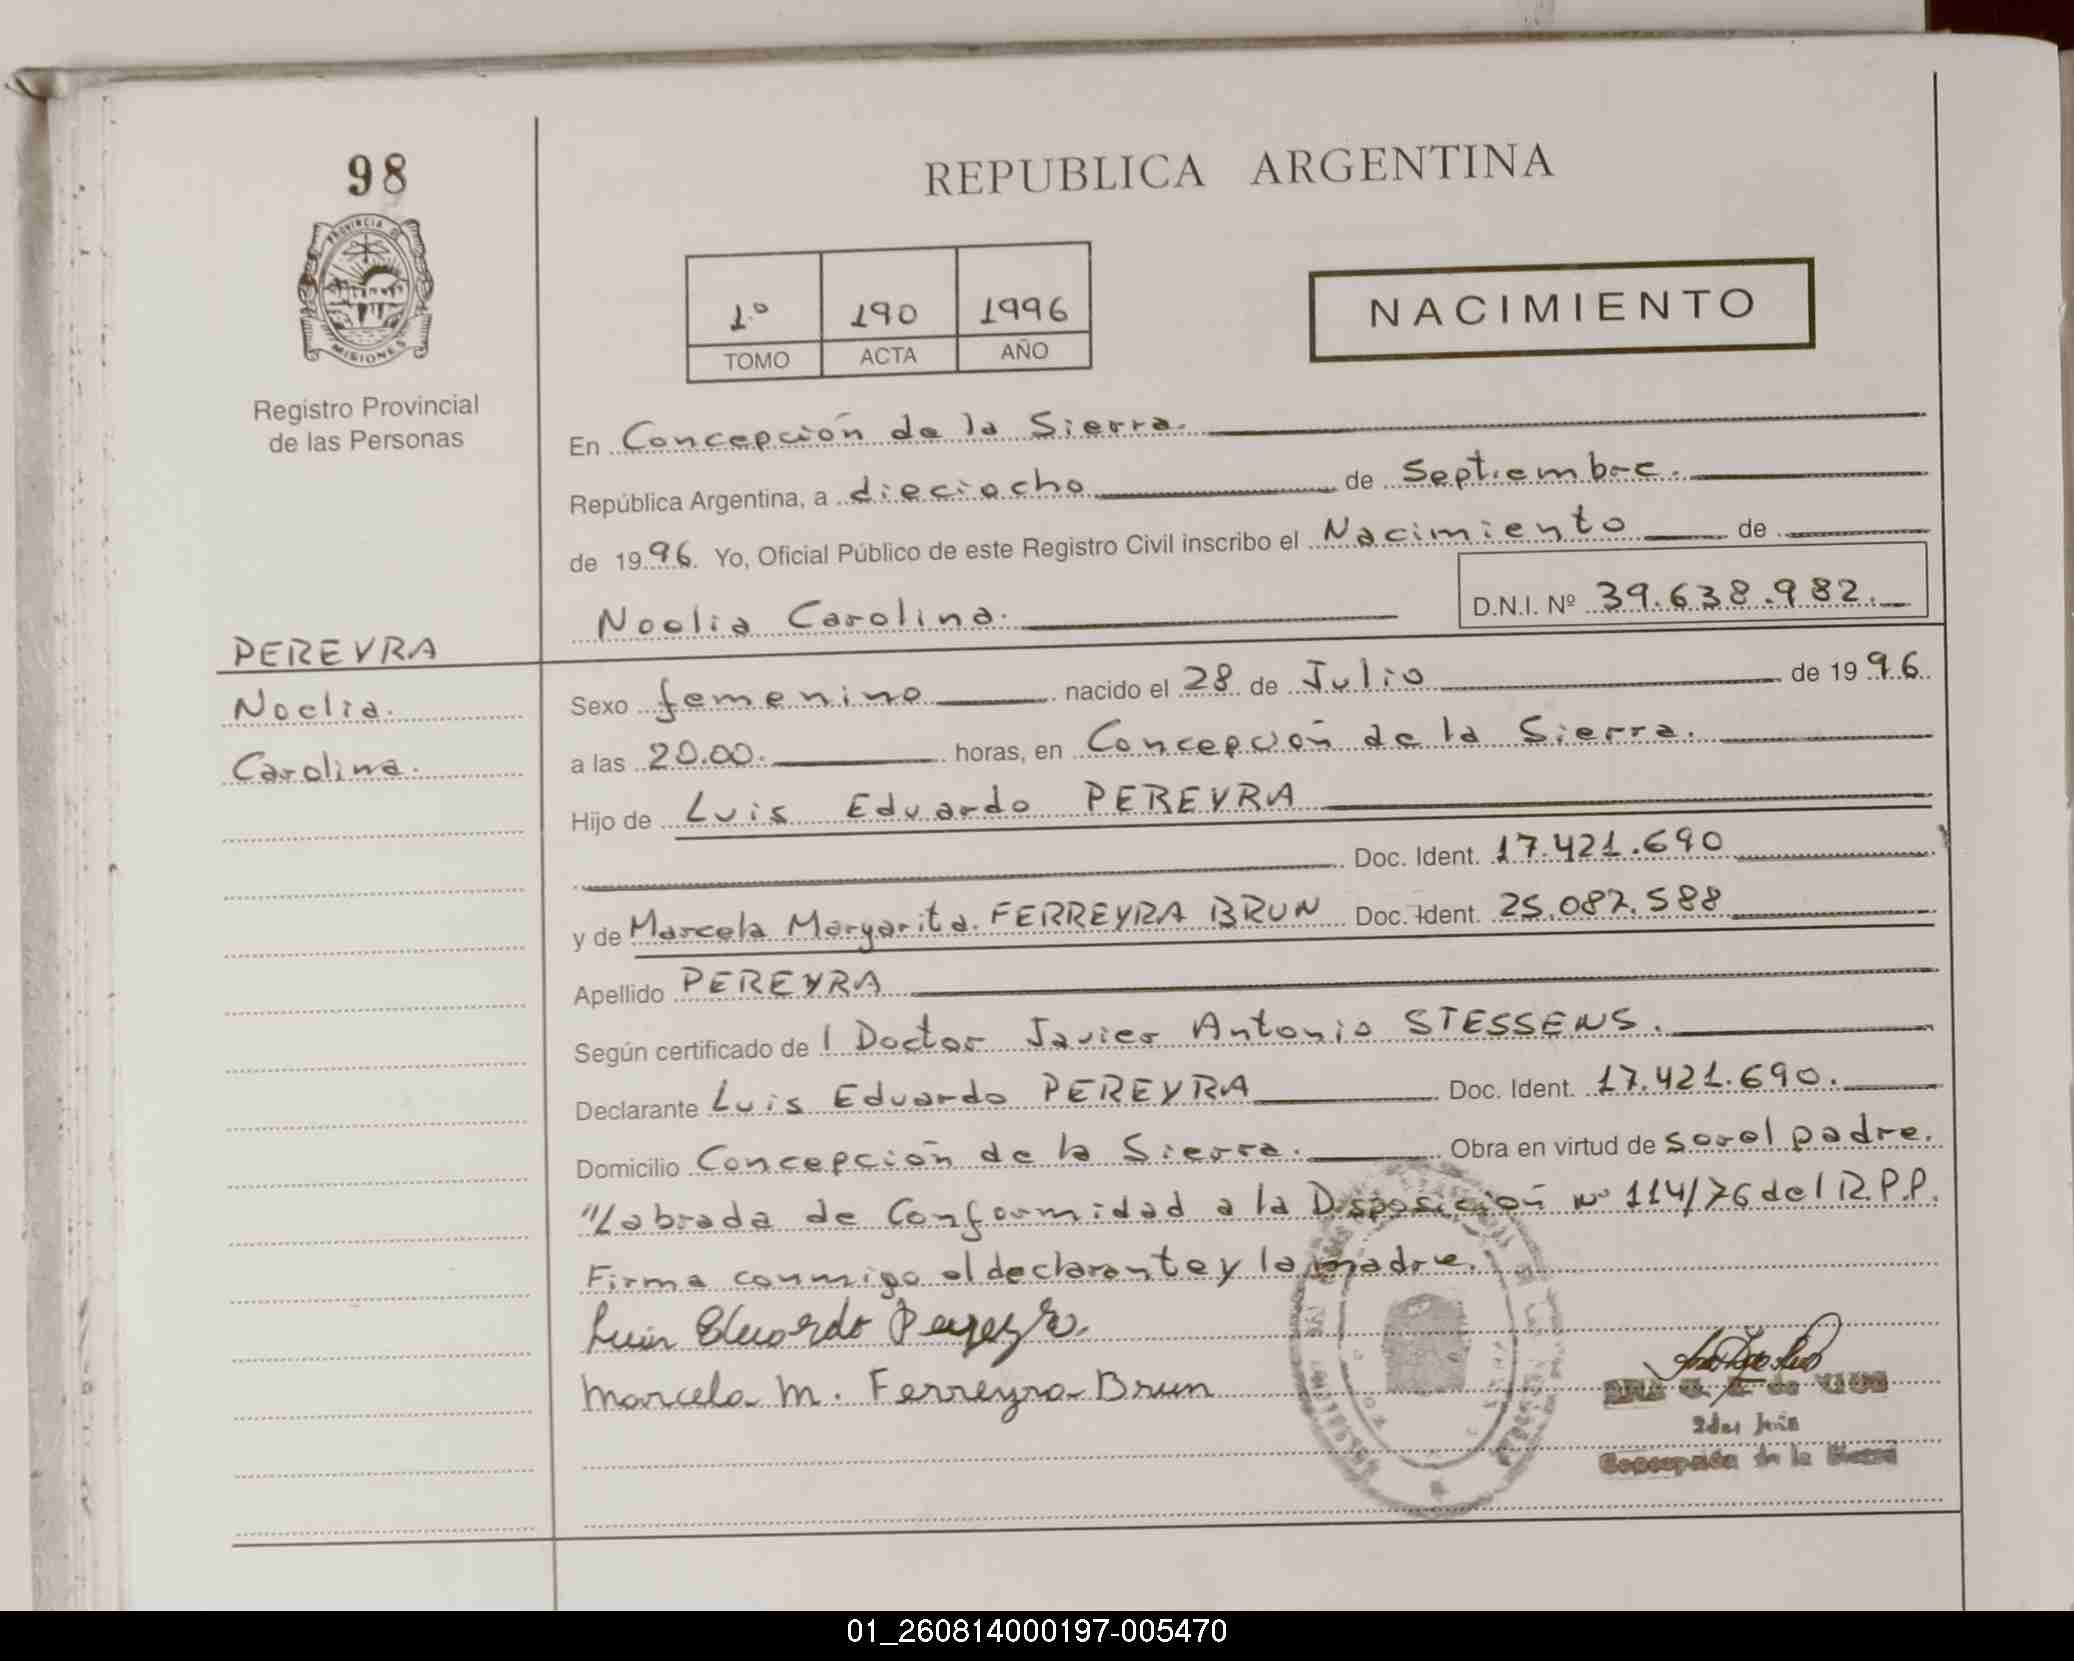 98
PROVINCIA DE
MISIONES
Registro Provincial
de las Personas
REPUBLICA ARGENTINA
1º 190 1996
TOMO ACTA AÑO
NACIMIENTO
En Concepción de la Sierra.
República Argentina, a dieciocho de Septiembre.
de 1996. Yo, Oficial Público de este Registro Civil inscribo el Nacimiento de
Noelia Carolina. D.N.I. Nº 39.638.982.
PEREYRA
Noelia
Carolina.
Sexo femenino nacido el 28 de Julio de 1996.
a las 20.00. horas, en Concepción de la Sierra.
Hijo de Luis Eduardo PEREYRA
Doc. Ident. 17.421.690
y de Marcela Margarita. FERREYRA BRUN Doc. Ident. 25.087.588
Apellido PEREYRA
Según certificado de l Doctor Javier Antonio STESSENS.
Declarante Luis Eduardo PEREYRA Doc. Ident. 17.421.690.
Domicilio Concepción de la Sierra. Obra en virtud de ser el padre.
"Labrada de Conformidad a la Disposición Nº 114/76 del R.P.P.
Firma conmigo el declarante y la madre.
Luis Eduardo Pereyra.
Marcela M. Ferreyra Brun
Concepción de la Sierra
01_260814000197-005470